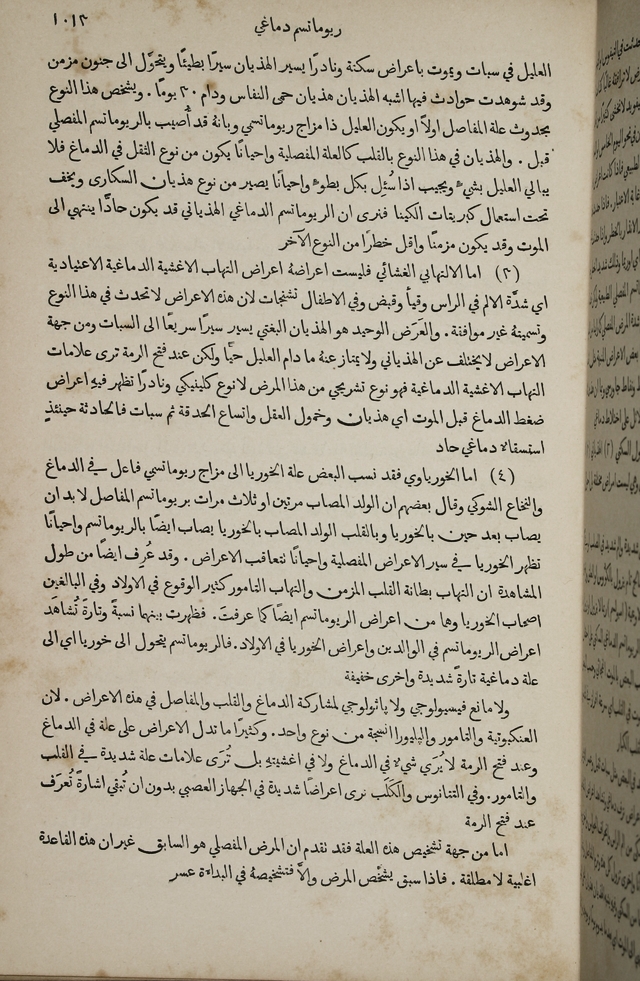 ريوماتسم دماغي
١٠١٣
العليل في سبات ويموت باعراض سكتة ونادرًا يسير الهذيان سيرًا بطيئًا ويتحوَّل الى جنون مزمن
وقد شوهدت حوادث فيها اشبه الهذيان هذيان حمى النفاس ودام ٢٠ يومًا . ويشخص هذا النوع
بحدوث علة المفاصل اولًا او يكون العليل ذا مزاج ريوماتسمي وبانهُ قد أُصيب بالريوماتسم المفصلي
قبل . والهذيان في هذا النوع بالقلب كالعلة المفصلية واحيانًا يكون من نوع الثقل في الدماغ فلا
يبالي العليل بشيءٍ ويجيب اذا سُئِل بكل بطوءٍ واحيانًا يصير من نوع هذيان السكارى ويخف
تحت استعمال كبريتات الكينا فنرى ان الريوماتسم الدماغي الهذياني قد يكون حادًّا ينتهي الى
الموت وقد يكون مزمنًا واقل خطرًا من النوع الآخر
(٣) اما الالتهابي الغشائي فليست اعراضهُ اعراض التهاب الاغشية الدماغية الاعتيادية
اي شدَّة الالم في الراس وقيأ وقبض وفي الاطفال تشنجات لان هذه الاعراض لا تحدث في هذا النوع
وتسميتهُ غير موافقة . والعَرَض الوحيد هو الهذيان البغتي يسير سيرًا سريعًا الى السبات ومن جهة
الاعراض لا يختلف عن الهذياني ولا يمتاز عنهُ ما دام العليل حيًّا ولكن عند فتح الرمة ترى علامات
التهاب الاغشية الدماغية فهو نوع تشريحي من هذا المرض لا نوع كلينيكي ونادرًا تظهر فيهِ اعراض
ضغط الدماغ قبل الموت اي هذيان وخمول العقل واتساع الحدقة ثم سبات فالحادثة حينئذٍ
استسقاء دماغي حاد
(٤) اما الخورياوي فقد نسب البعض علة الخوريا الى مزاج ريوماتسمي فاعل في الدماغ
والنخاع الشوكي وقال بعضهم ان الولد المصاب مرتين او ثلاث مرات بريوماتسم المفاصل لا بد ان
يصاب بعد حين بالخوريا وبالقلب الولد المصاب بالخوريا يصاب ايضًا بالريوماتسم واحيانًا
تظهر الخوريا في سير الاعراض المفصلية واحيانًا تتعاقب الاعراض . وقد عُرف ايضًا من طول
المشاهدة ان التهاب بطانة القلب المزمن والتهاب التامور كثير الوقوع في الاولاد وفي البالغين
اصحاب الخوريا وها من اعراض الريوماتسم ايضًا كما عرفت . فظهرت بينهما نسبة وتارةً تُشاهَد
اعراض الريوماتسم في الوالدين واعراض الخوريا في الاولاد. فالريوماتسم يتحول الى خوريا اي الى
علة دماغية تارةً شديدة واخرى خفيفة
ولا مانع فيسيولوجي ولا باثولوجي لمشاركة الدماغ والقلب والمفاصل في هذه الاعراض . لان
العنكبوتية والتامور والپليورا انسجة من نوع واحد . وكثيرًا ما تدل الاعراض على علة في الدماغ
وعند فتح الرمة لا يُرَى شيء في الدماغ ولا في اغشيتهِ بل تُرَى علامات علة شديدة في القلب
والتامور. وفي التتانوس والكَلَب نرى اعراضًا شديدة في الجهاز العصبي بدون ان تُبقي اشارةً تُعرَف
عند فتح الرمة
اما من جهة تشخيص هذه العلة فقد تقدم ان المرض المفصلي هو السابق غير ان هذه القاعدة
اغلبية لا مطلقة . فاذا سبق يشخَّص المرض والاَّ فتشخيصهُ في البداءة عسر